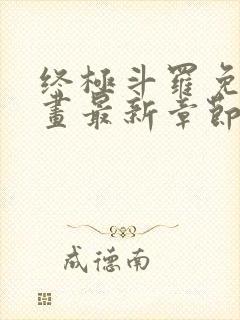 终極斗羅免
畫最新章節
成德南